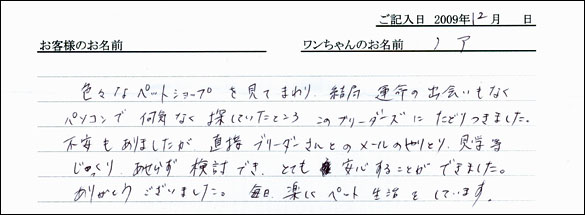 ご記入日 2009年12月 日
お客様のお名前 ワンちゃんのお名前 ノア
色々なペットショップを見てまわり、結局 運命の出会いもなく
パソコンで何気なく探していたところ このブリーダーズにたどりつきました。
不安もありましたが、直接ブリーダーさんとのメールのやりとり、見学等
じっくり、あせらず検討でき、とても安心することができました。
ありがとうございました。毎日、楽しくペット生活をしています。